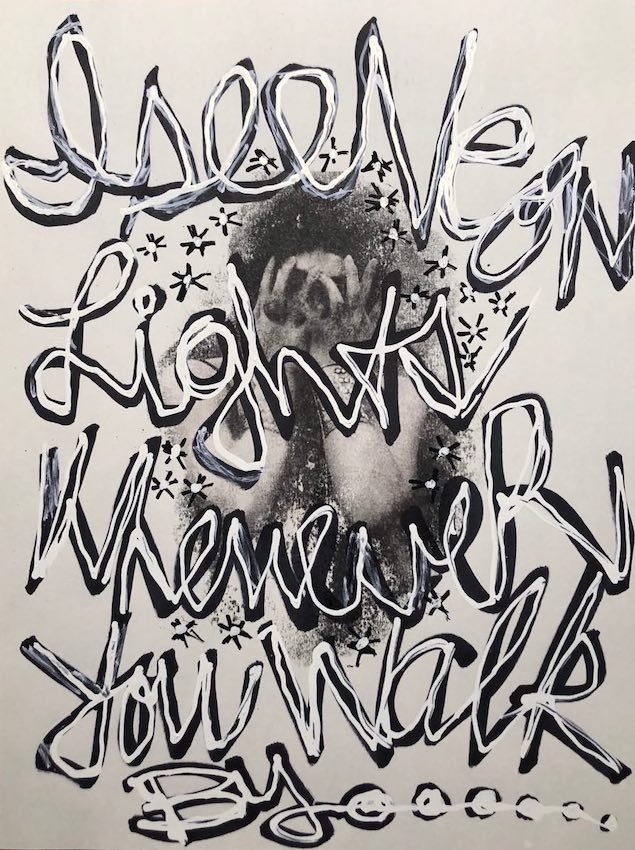 I see Neon
Lights
WheneveR
you Walk
By.......